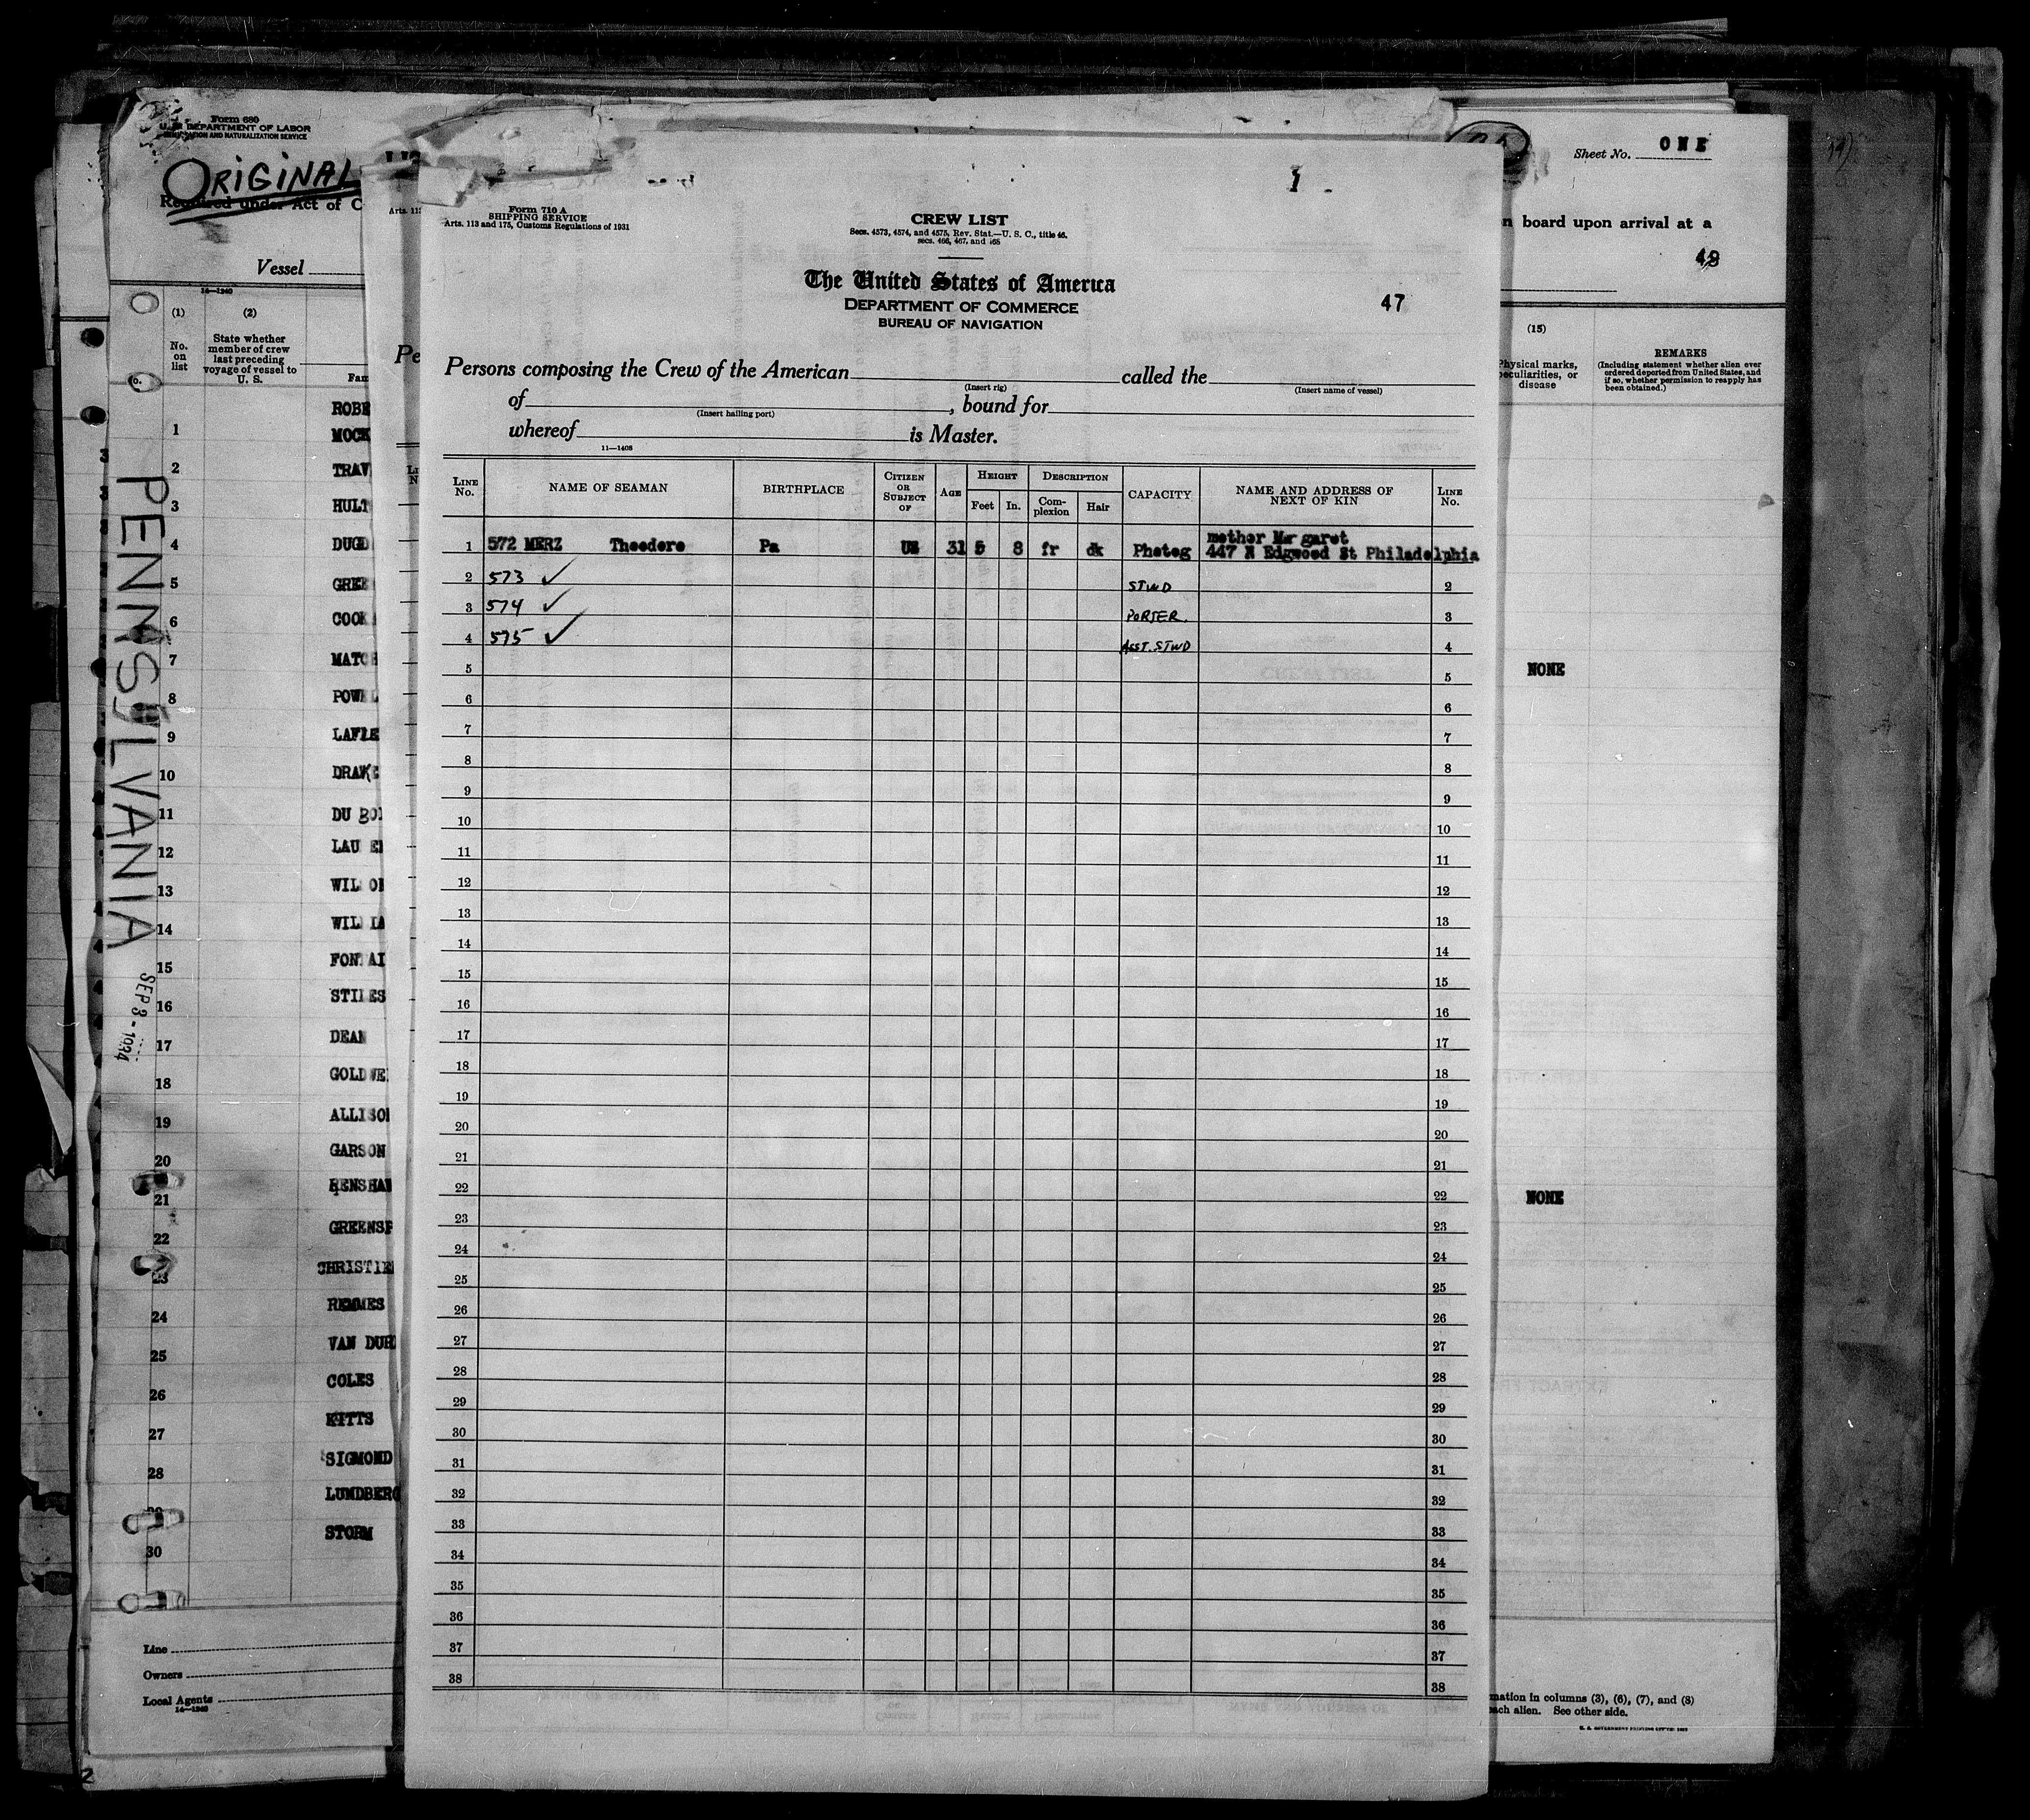 Form 680
U. S. DEPARTMENT OF LABOR
IMMIGRATION AND NATURALIZATION SERVICE
ORIGINAL
Required under Act of C
Vessel
14—1240
(1) (2)
No. on list
State whether member of crew last preceding voyage of vessel to U. S.
Fam
ROBE
1 MOCK
2 TRAV
3 HULT
4 DUGD
5 GREE
6 COOK
7 MATCH
8 POWEL
9 LAFLE
10 DRAKE
11 DU BOI
12 LAU EN
13 WIL ON
14 WIL IA
15 FON AI
16 STILES
17 DEAN
18 GOLDWE
19 ALLISON
20 GARSON
21 RENSHAW
22 GREENSP
23 CHRISTIE
24 REMMES
25 VAN DUR
26 COLES
27 KITTS
28 SIGMOND
29 LUNDBERG
30 STORM
Line
Owners
Local Agents
14—1240
PENNSYLVANIA
SEP 3 - 1934
Arts. 113
Pe
1
Form 710 A
SHIPPING SERVICE
Arts. 113 and 175, Customs Regulations of 1931
CREW LIST
Secs. 4573, 4574, and 4575, Rev. Stat.—U. S. C., title 46,
secs. 466, 467, and 468
The United States of America
DEPARTMENT OF COMMERCE
BUREAU OF NAVIGATION
47
Persons composing the Crew of the American called the
(Insert rig) (Insert name of vessel)
of , bound for
(Insert hailing port)
whereof is Master.
11—1408
LINE No. NAME OF SEAMAN BIRTHPLACE CITIZEN OR SUBJECT OF AGE HEIGHT Feet In. DESCRIPTION Complexion Hair CAPACITY NAME AND ADDRESS OF NEXT OF KIN LINE No.
mother Margaret
1 572 MERZ Theodore Pa US 31 5 8 fr dk Photog 447 N Edgwood St Philadelphia
2 573 ✓ STWD 2
3 574 ✓ PORTER. 3
4 575 ✓ ASST. STWD 4
5 5
6 6
7 7
8 8
9 9
10 10
11 11
12 12
13 13
14 14
15 15
16 16
17 17
18 18
19 19
20 20
21 21
22 22
23 23
24 24
25 25
26 26
27 27
28 28
29 29
30 30
31 31
32 32
33 33
34 34
35 35
36 36
37 37
38 38
Sheet No. ONE
n board upon arrival at a
48
(15)
Physical marks, peculiarities, or disease
REMARKS
(Including statement whether alien ever ordered deported from United States, and if so, whether permission to reapply has been obtained.)
NONE
NONE
mation in columns (3), (6), (7), and (8)
each alien. See other side.
2